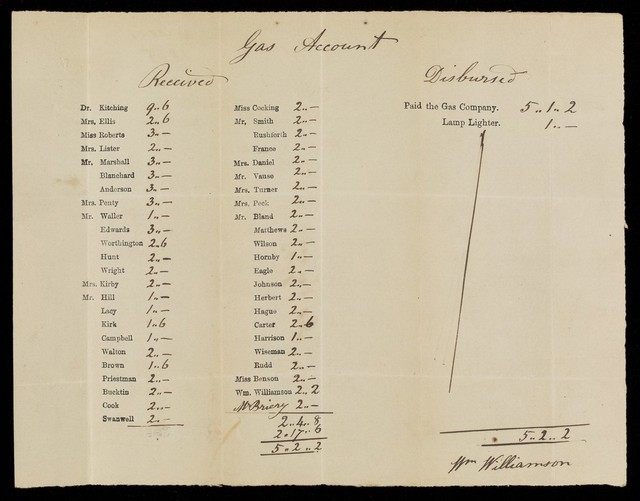 Gas Account
Received
Dr. Kitching 9..6
Mrs. Ellis 2..6
Miss Roberts 3..—
Mrs. Lister 2..—
Mr. Marshall 3..—
Blanchard 3..—
Anderson 3..—
Mrs. Penty 3..—
Mr. Waller 1..—
Edwards 3..—
Worthington 2..6
Hunt 2..—
Wright 2..—
Mrs. Kirby 2..—
Mr. Hill 1..—
Lacy 1..—
Kirk 1..6
Campbell 1..—
Walton 2..—
Brown 1..6
Priestman 2..—
Bucktin 2..—
Cook 2..—
Swanwell 2..—
Miss Cocking 2..—
Mr. Smith 2..—
Rushforth 2..—
France 2..—
Mrs. Daniel 2..—
Mr. Vause 2..—
Mrs. Turner 2..—
Mrs. Peek 2..—
Mr. Bland 2..—
Matthews 2..—
Wilson 2..—
Hornby 1..—
Eagle 2..—
Johnson 2..—
Herbert 2..—
Hague 2..—
Carter 2..6
Harrison 1..—
Wiseman 2..—
Rudd 2..—
Miss Benson 2..—
Wm. Williamson 2..2
Mr Briery 2..—
2..4..8
2..17..6
5..2..2
Disbursed
Paid the Gas Company. 5..1..2
Lamp Lighter. 1..—
5..2..2
Wm Williamson